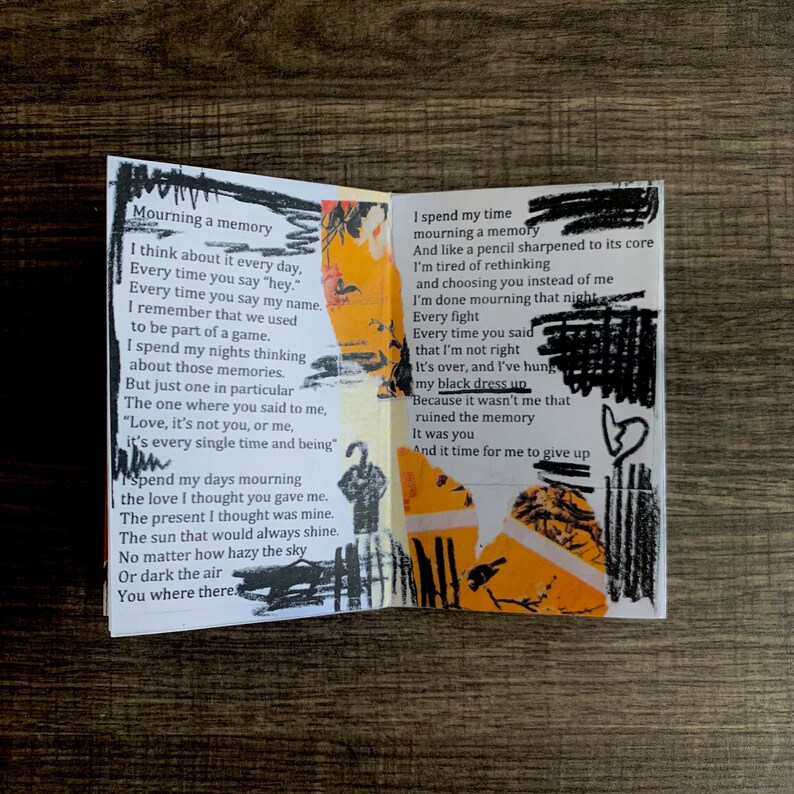 Mourning a memory
I think about it every day,
Every time you say “hey.”
Every time you say my name.
I remember that we used
to be part of a game.
I spend my nights thinking
about those memories.
But just one in particular
The one where you said to me,
“Love, it’s not you, or me,
it’s every single time and being”
I spend my days mourning
the love I thought you gave me.
The present I thought was mine.
The sun that would always shine.
No matter how hazy the sky
Or dark the air
You where there.
I spend my time
mourning a memory
And like a pencil sharpened to its core
I’m tired of rethinking
and choosing you instead of me
I’m done mourning that night
Every fight
Every time you said
that I’m not right
It’s over, and I’ve hung
my black dress up
Because it wasn’t me that
ruined the memory
It was you
And it time for me to give up